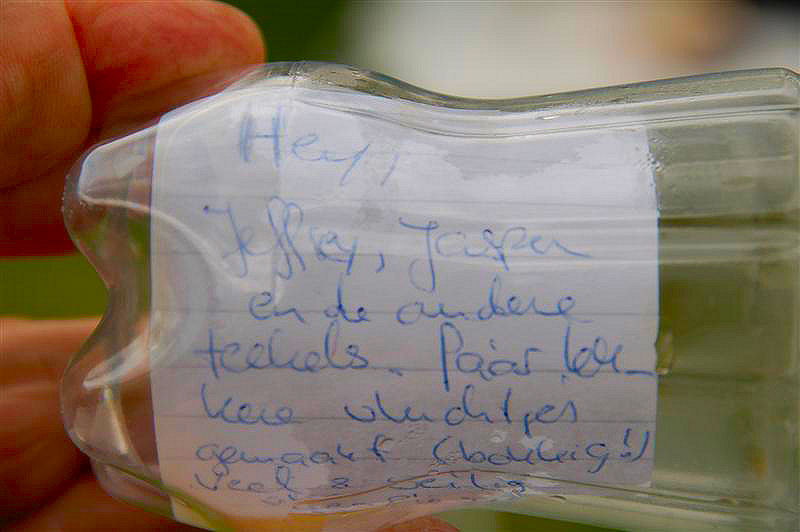 Hey,
Jeffrey, Jasper
en de andere
teckels. Paar lek-
kere vluchtjes
gemaakt (bokkig!!)
Veel & veilig